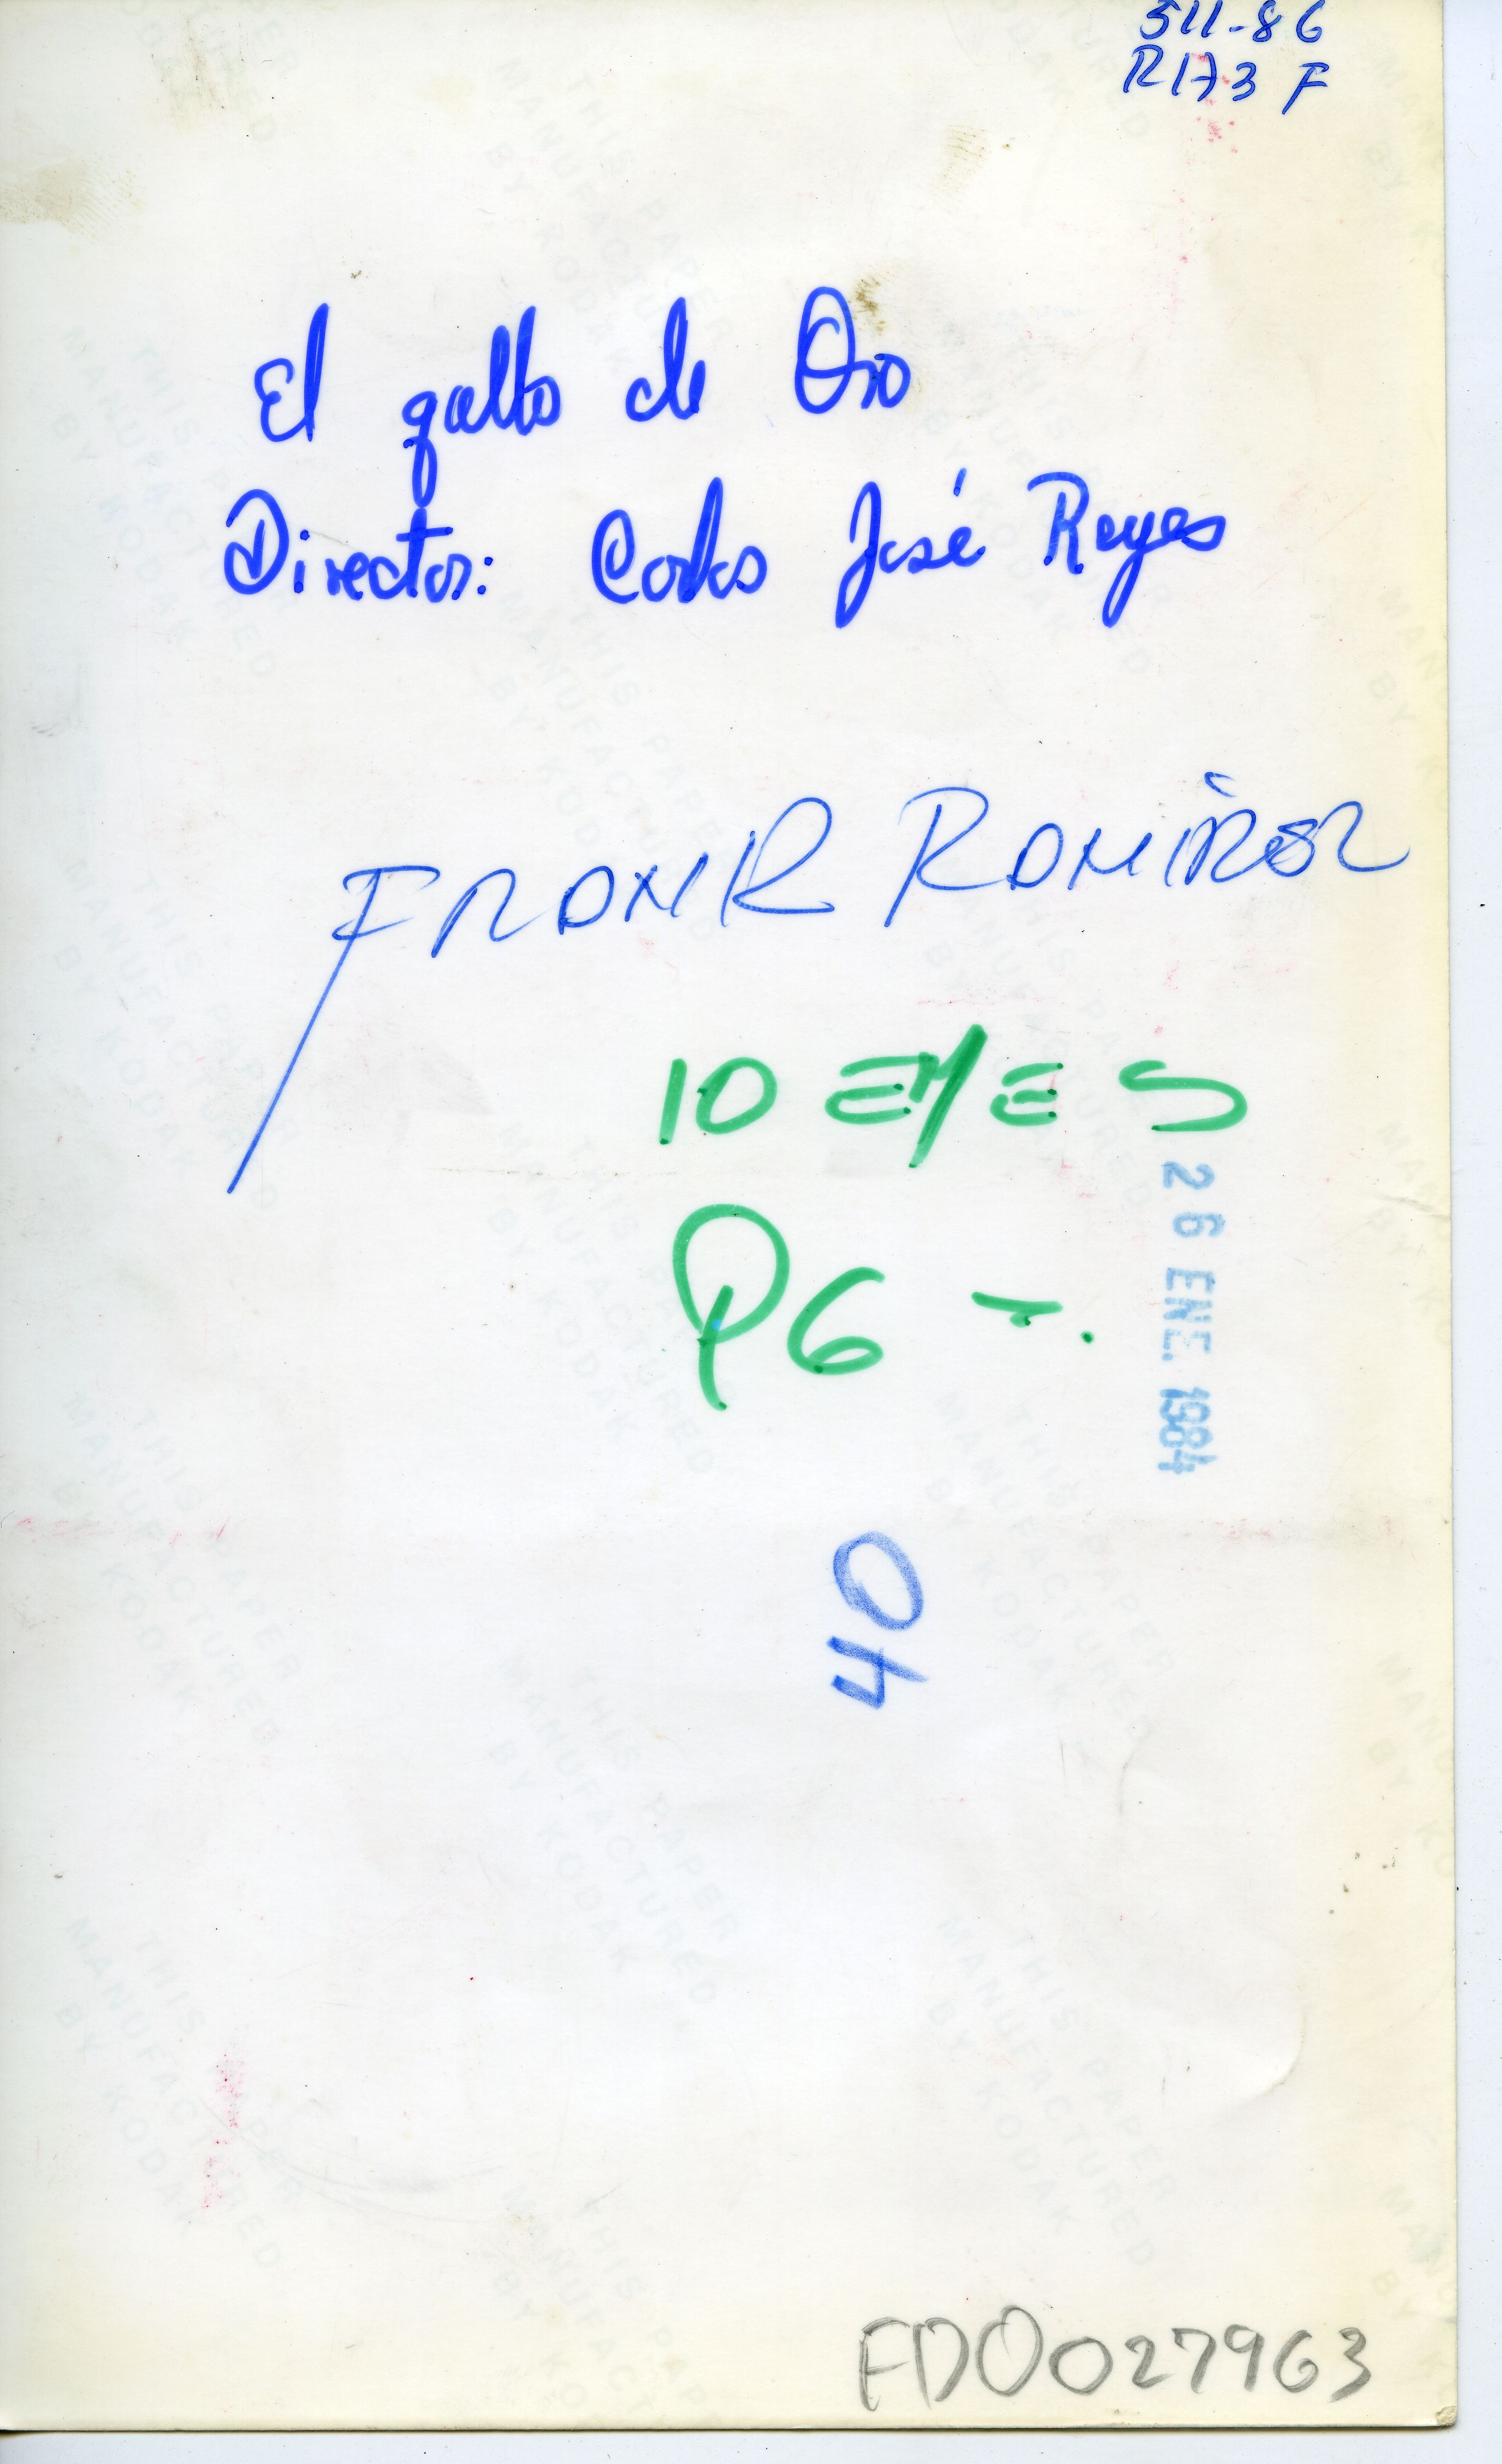 511-86
R173 F
El gallo de Oro
Director: Carlos José Reyes
FRANK RAMÍREZ
10 EMES
P6 -.
26 ENE. 1984
40
FDO027963
THIS PAPER
MANUFACTURED
BY KODAK